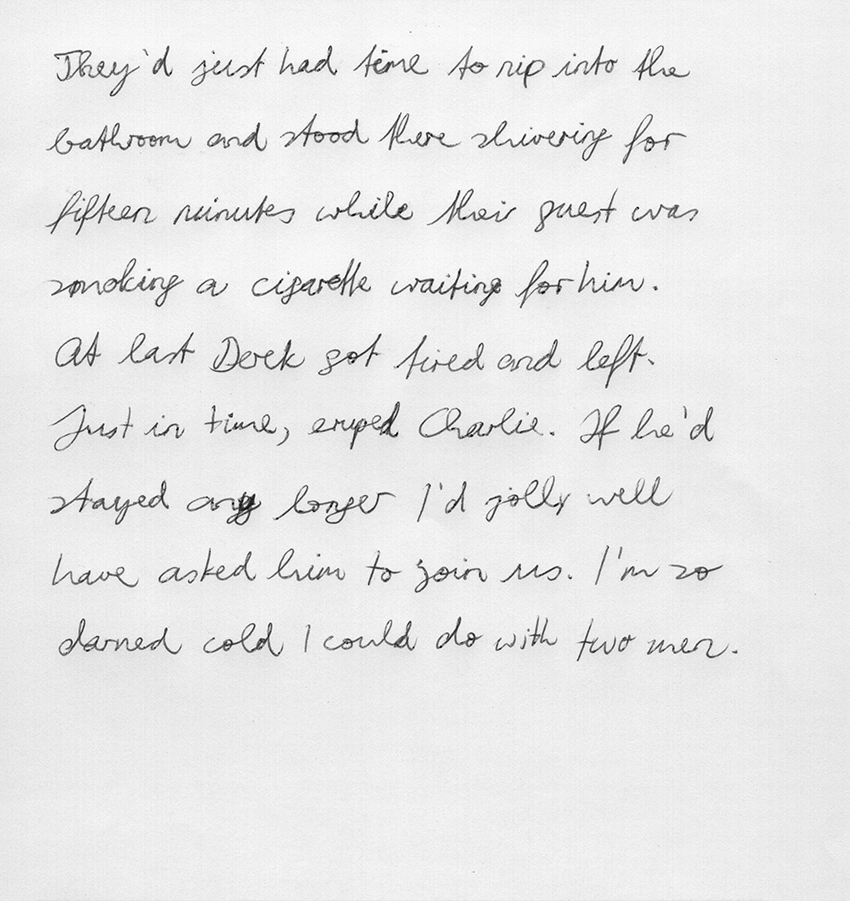 They'd just had time to nip into the
bathroom and stood there shivering for
fifteen minutes while their guest was
smoking a cigarette waiting for him.
At last Derek got tired and left.
Just in time, eruped Charlie. If he'd
stayed any longer I'd jolly well
have asked him to join us. I'm so
darned cold I could do with two men.